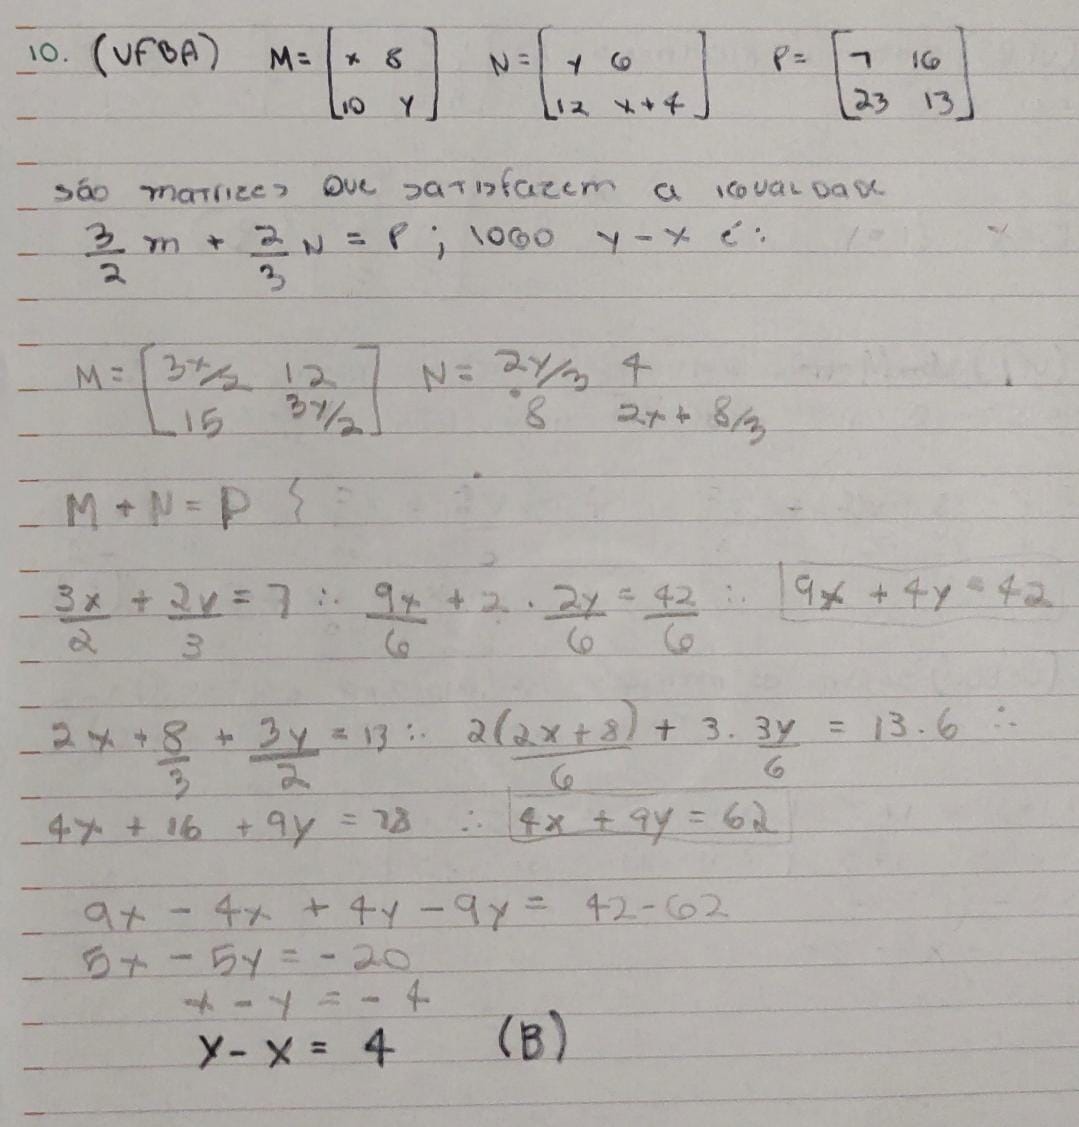 10. (UFBA) M = [x 8 N = [y 6 P = [7 16
10 y] 12 x+4] 23 13]
são matrizes que satisfazem a igualdade
3/2 m + 2/3 N = P ; logo y - x é:
M = [3x/2 12 N = 2y/3 4
15 3y/2] 8 2x + 8/3
M + N = P {
3x/2 + 2y/3 = 7 ∴ 9x/6 + 2 . 2y/6 = 42/6 ∴ 9x + 4y = 42
2x + 8/3 + 3y/2 = 13 ∴ 2(2x+8)/6 + 3. 3y/6 = 13.6 ∴
4x + 16 + 9y = 78 ∴ 4x + 9y = 62
9x - 4x + 4y - 9y = 42 - 62
5x - 5y = - 20
x - y = - 4
y - x = 4 (B)